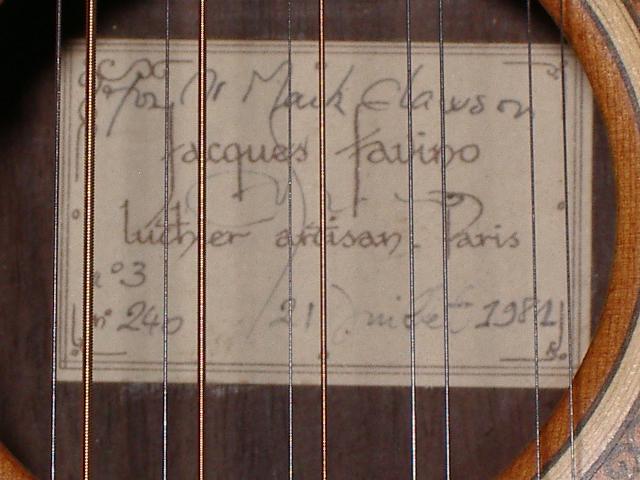 for Mr Mark Clawson
Jacques Favino
luthier artisan. Paris
n°3
n° 240 21 Juillet 1981